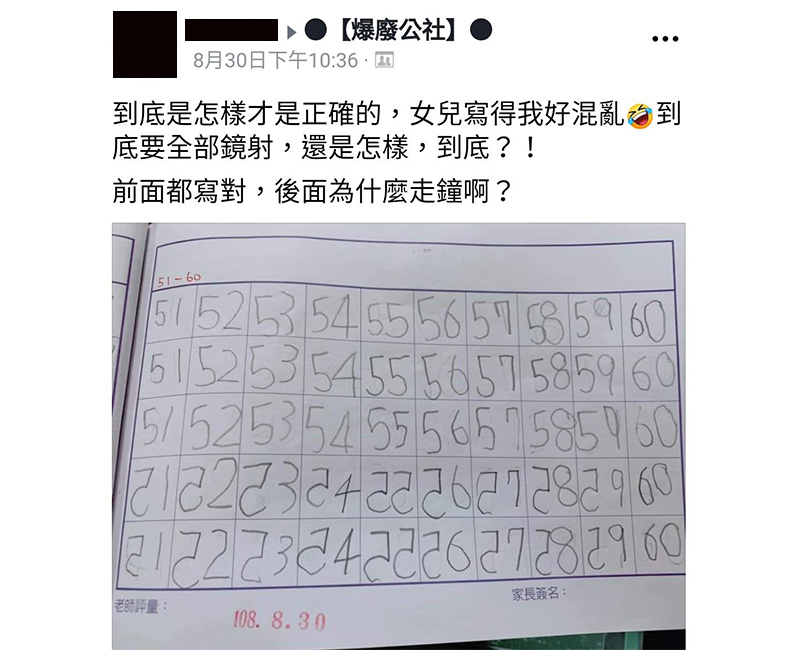 ●【爆廢公社】●
8月30日下午10:36 ·
到底是怎樣才是正確的，女兒寫得我好混亂🤣到
底要全部鏡射，還是怎樣，到底？！
前面都寫對，後面為什麼走鐘啊？
51-60
51 52 53 54 55 56 57 58 59 60
51 52 53 54 55 56 57 58 59 60
51 52 53 54 55 56 57 58 59 60
21 22 23 24 22 26 27 28 29 60
21 22 23 24 22 26 27 28 29 60
老師評量：
家長簽名：
108. 8. 30